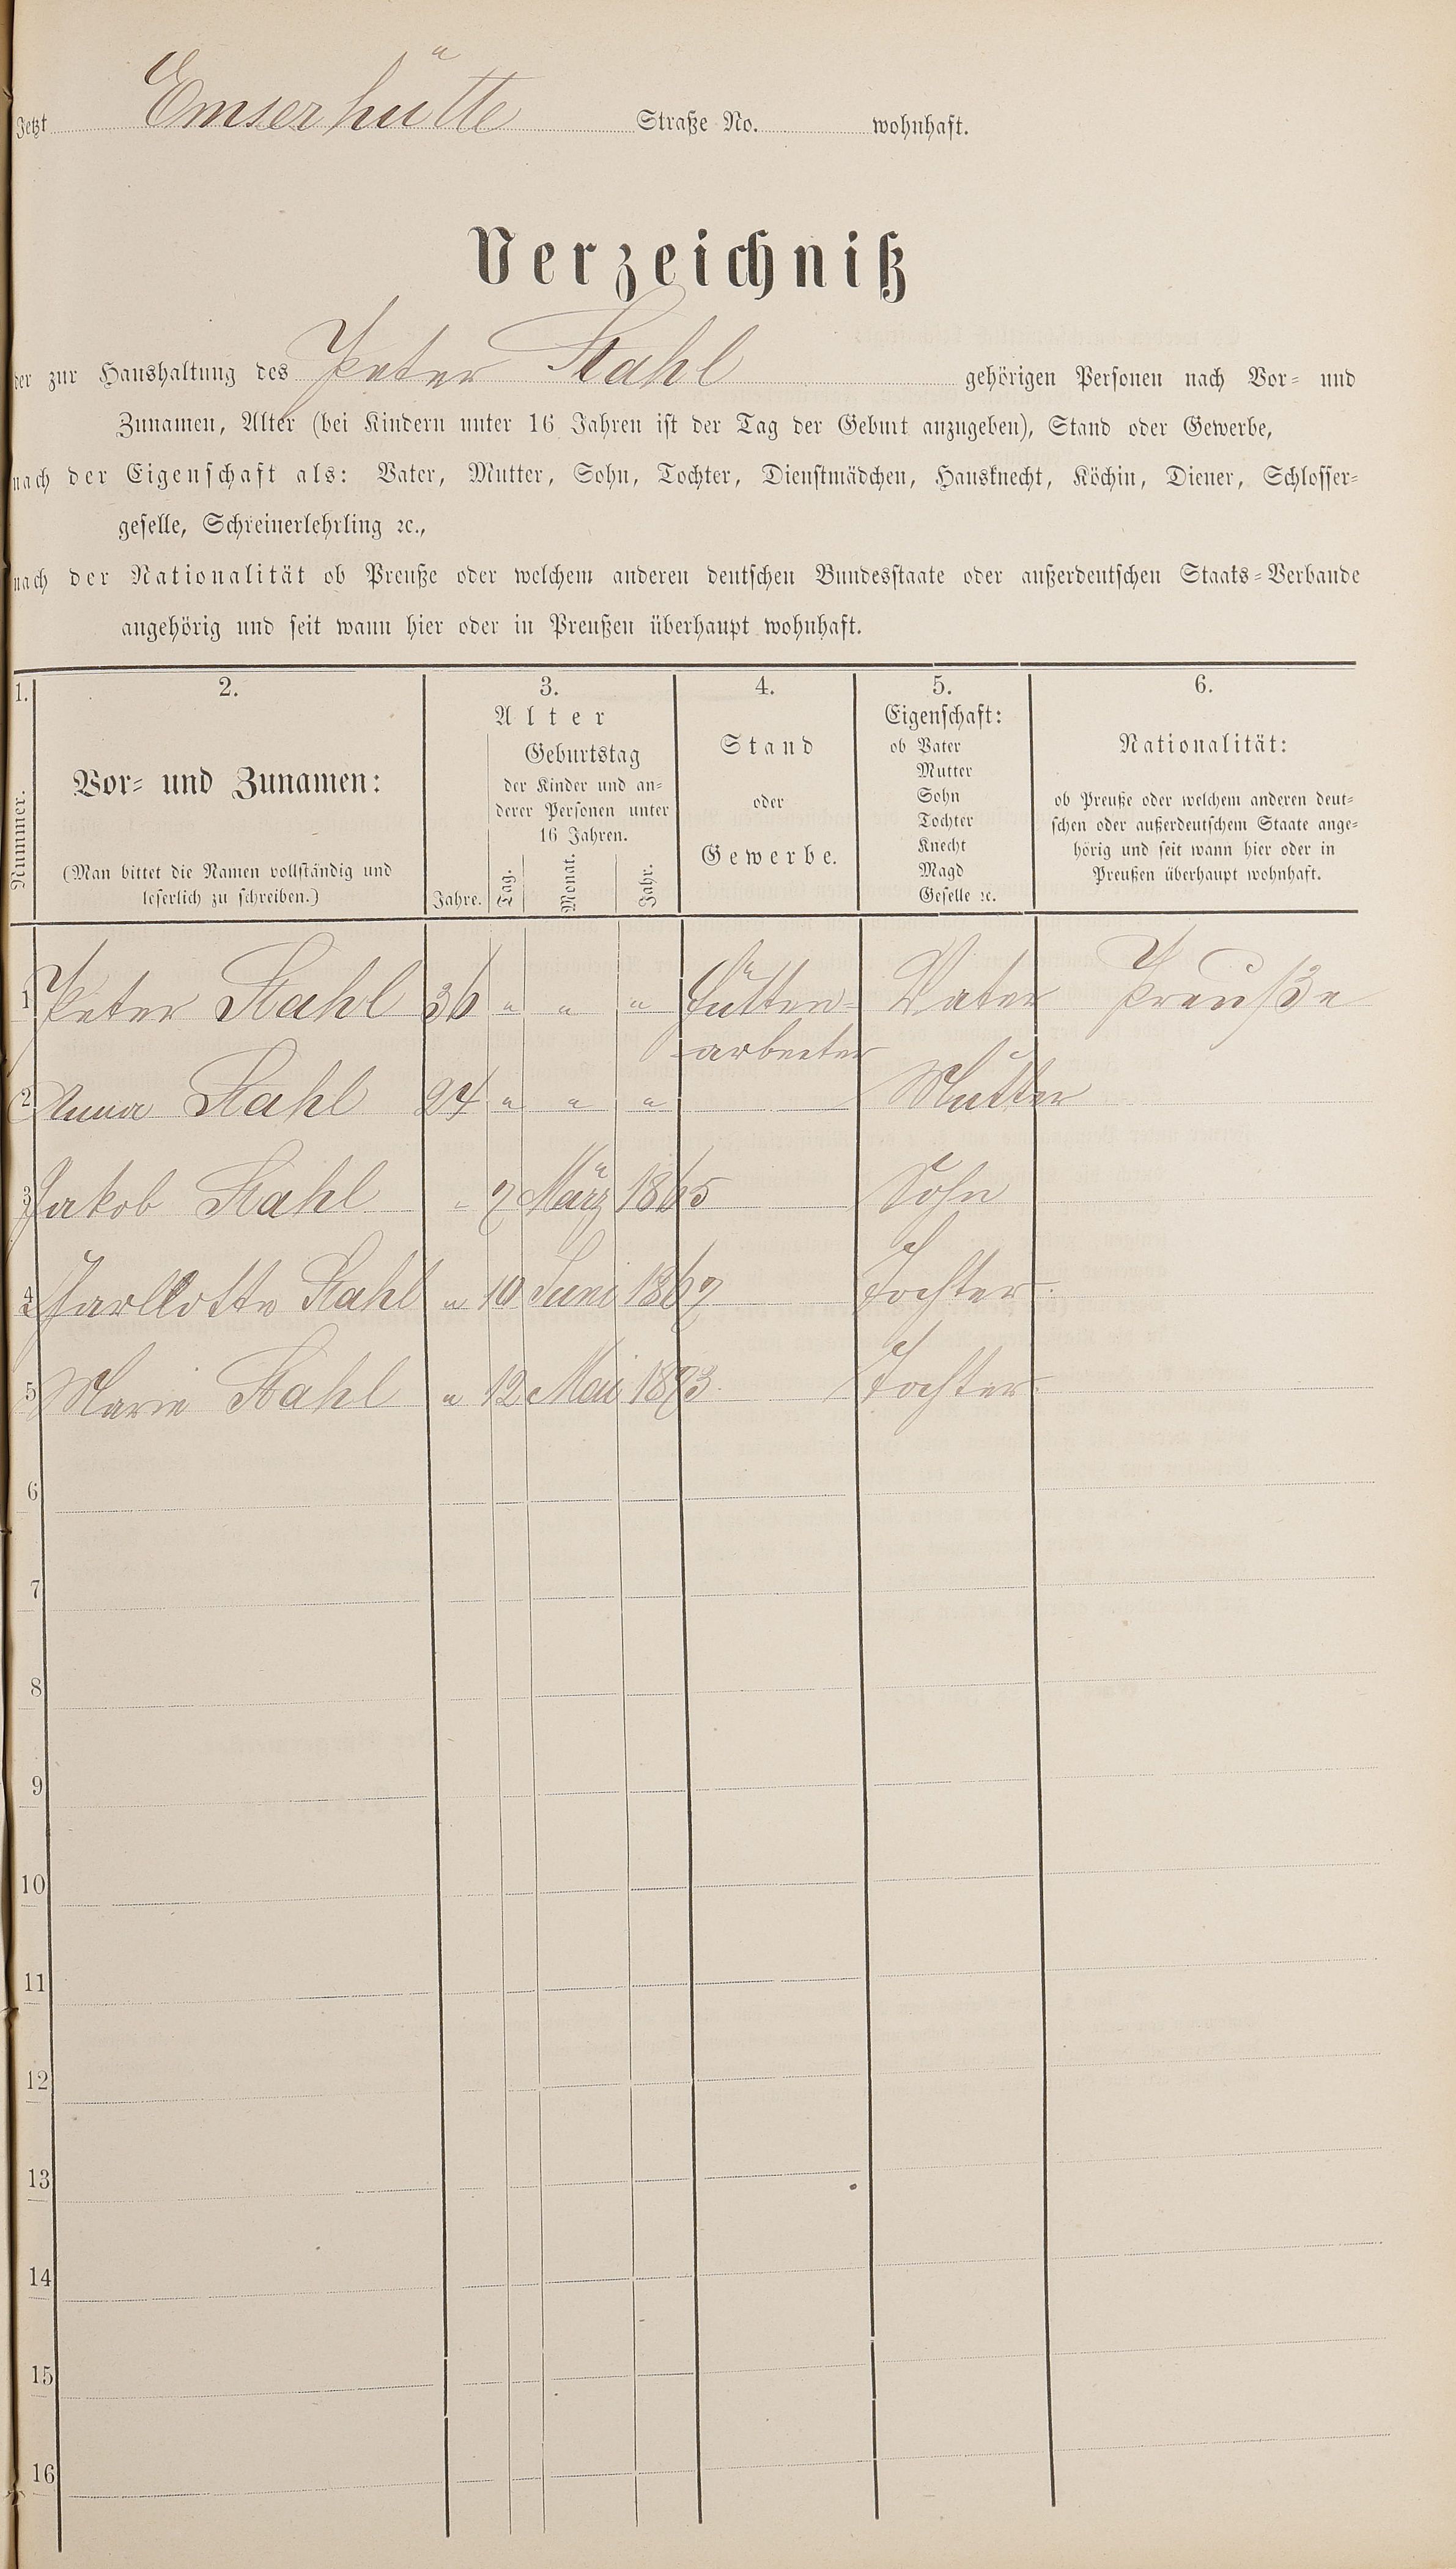 Jetzt Emserhütte Straße No. wohnhaft.
Verzeichniß
der zur Haushaltung des Peter Stahl gehörigen Personen nach Vor- und
Zunamen, Alter (bei Kindern unter 16 Jahren ist der Tag der Geburt anzugeben), Stand oder Gewerbe,
nach der Eigenschaft als: Vater, Mutter, Sohn, Tochter, Dienstmädchen, Hausknecht, Köchin, Diener, Schlosser-
geselle, Schreinerlehrling ꝛc.,
nach der Nationalität ob Preuße oder welchem anderen deutschen Bundesstaate oder außerdeutschen Staats-Verbande
angehörig und seit wann hier oder in Preußen überhaupt wohnhaft.
1. 2. 3. 4. 5. 6.
Nummer.
Vor- und Zunamen:
(Man bittet die Namen vollständig und
leserlich zu schreiben.)
Alter
Jahre.
Geburtstag
der Kinder und an-
derer Personen unter
16 Jahren.
Tag. Monat. Jahr.
Stand
oder
Gewerbe.
Eigenschaft:
ob Vater
Mutter
Sohn
Tochter
Knecht
Magd
Geselle ꝛc.
Nationalität:
ob Preuße oder welchem anderen deut-
schen oder außerdeutschem Staate ange-
hörig und seit wann hier oder in
Preußen überhaupt wohnhaft.
1 Peter Stahl 36 " " " Hütten- Vater Preuße
arbeiter
2 Anna Stahl 24 " " " Mutter
3 Jakob Stahl " 7 März 1865 Sohn
4 Scharllotte Stahl " 10 Juni 1867 Tochter
5 Marie Stahl " 12 Mai 1873 Tochter
6
7
8
9
10
11
12
13
14
15
16